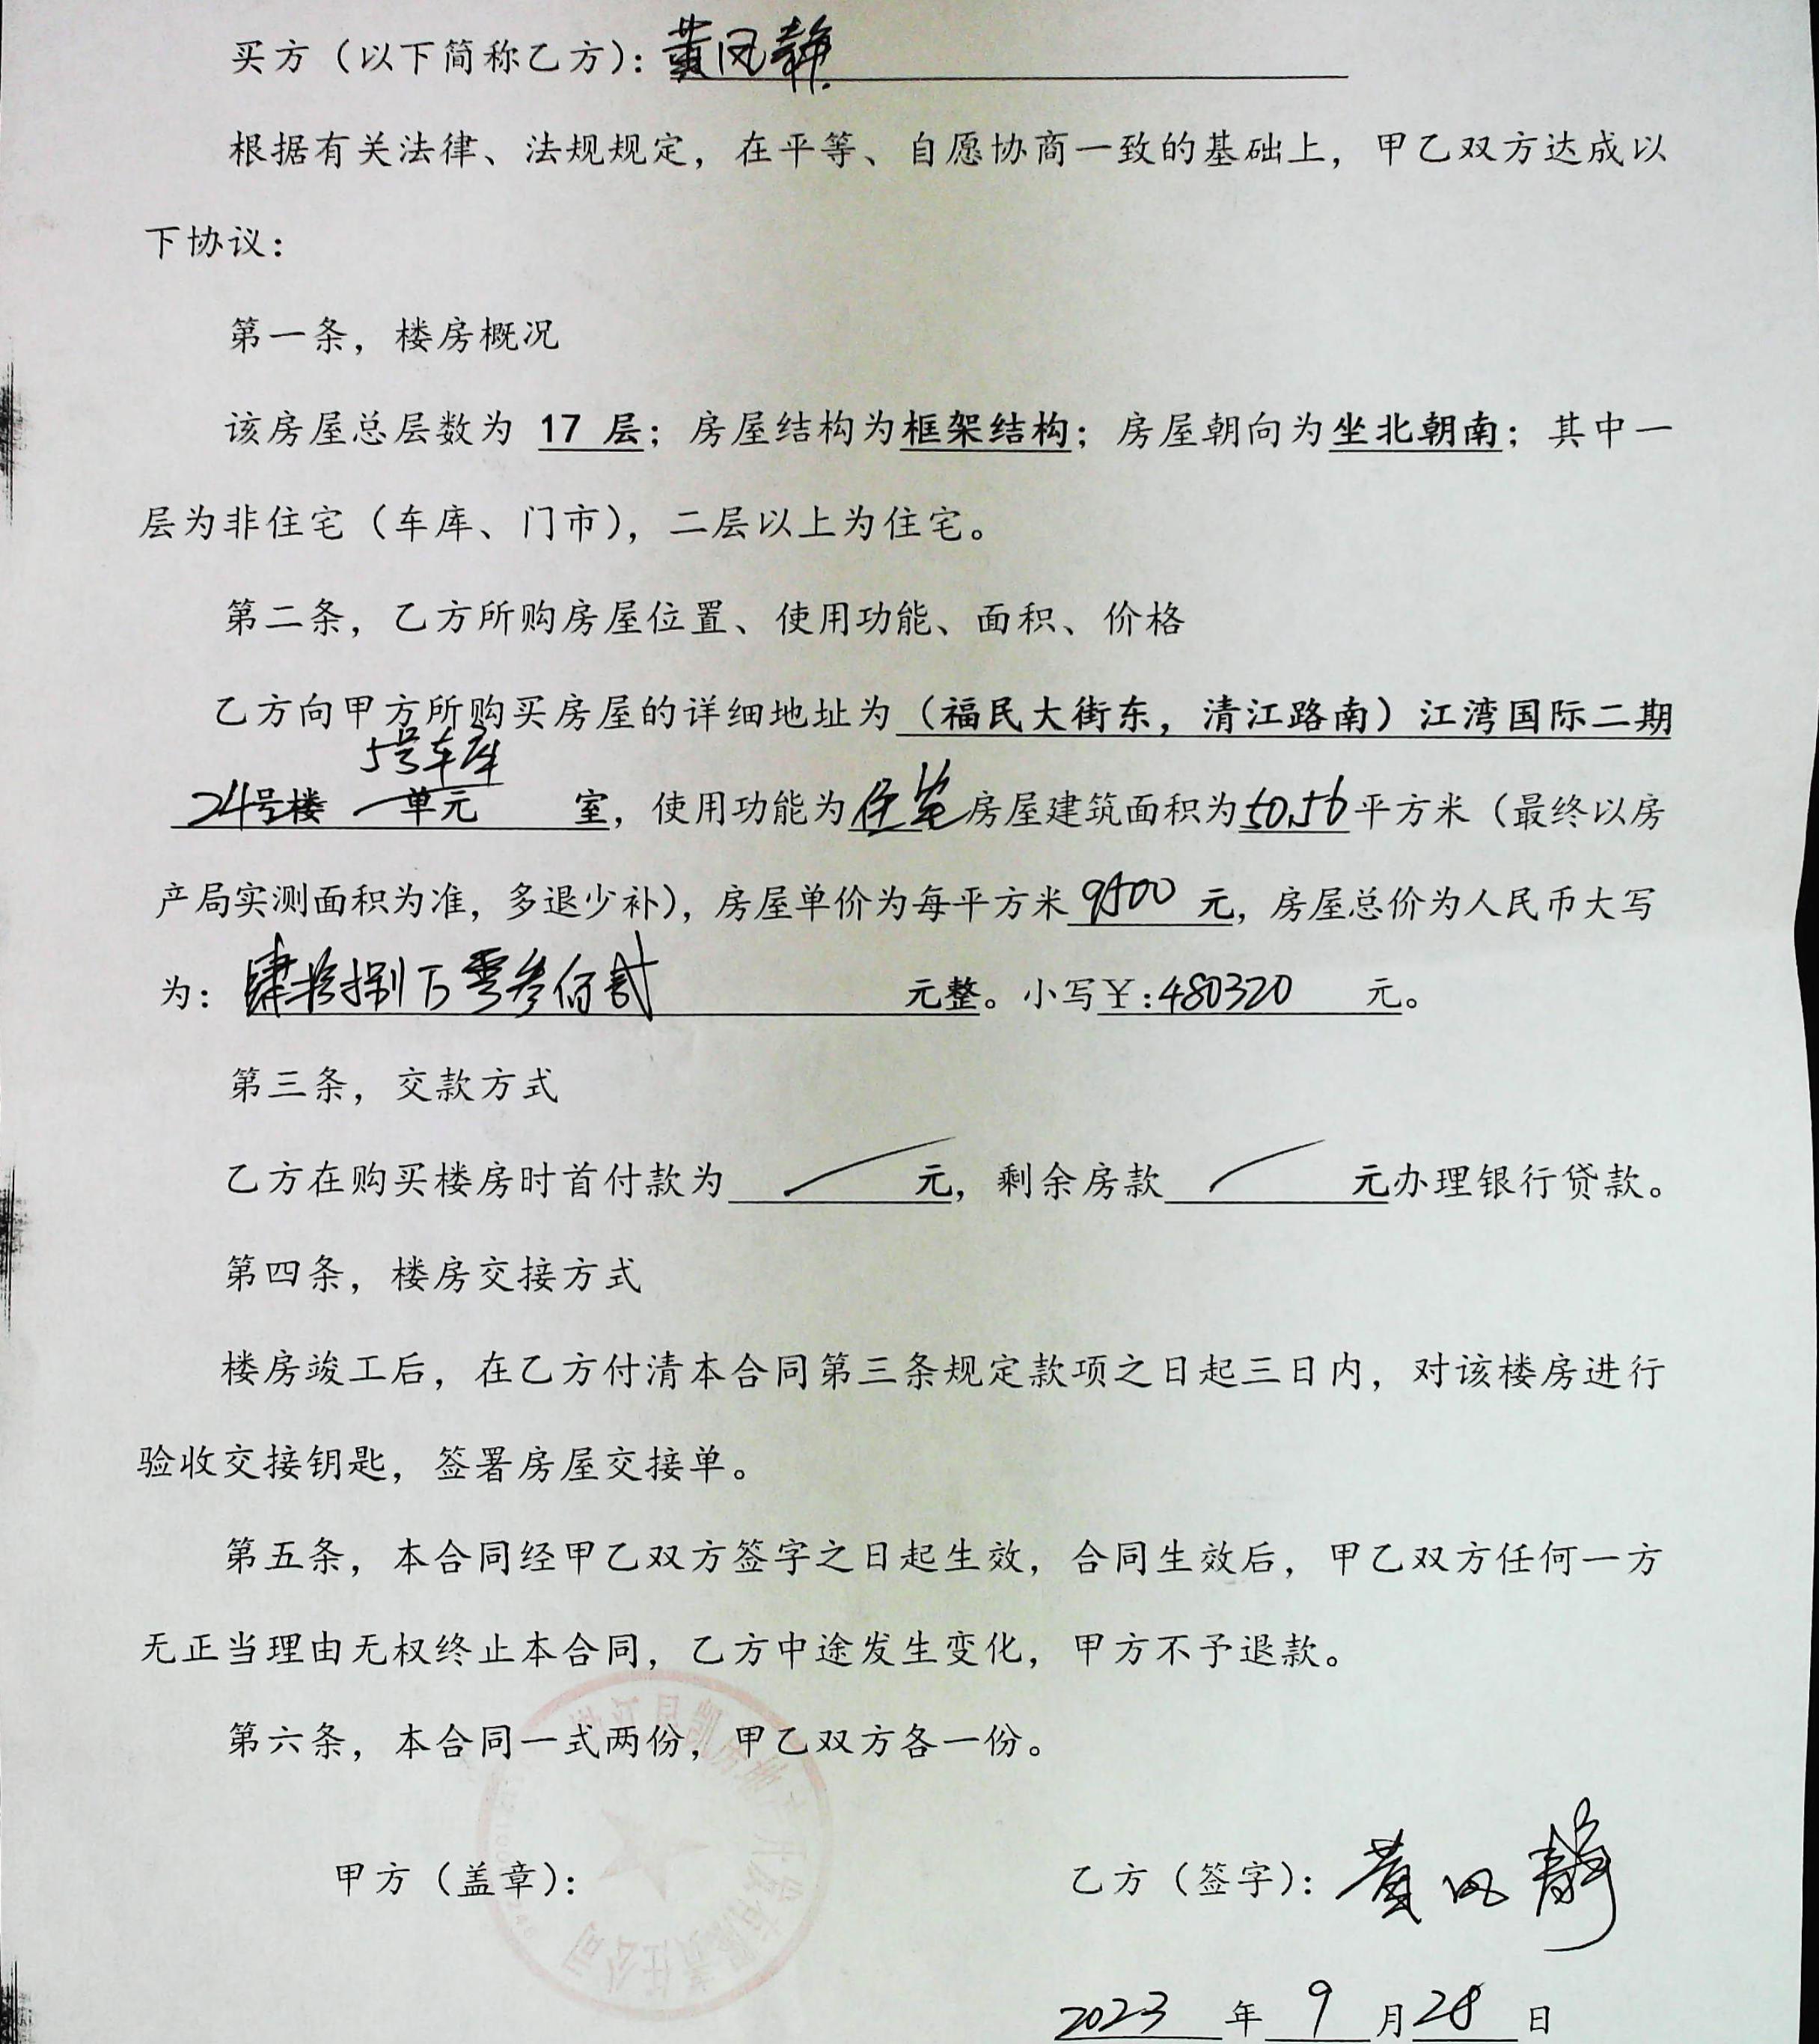 买方（以下简称乙方）：黄凤静
根据有关法律、法规规定，在平等、自愿协商一致的基础上，甲乙双方达成以
下协议：
第一条，楼房概况
该房屋总层数为 17 层；房屋结构为框架结构；房屋朝向为坐北朝南；其中一
层为非住宅（车库、门市），二层以上为住宅。
第二条，乙方所购房屋位置、使用功能、面积、价格
乙方向甲方所购买房屋的详细地址为（福民大街东，清江路南）江湾国际二期
5号车库
24号楼 单元 室，使用功能为住宅房屋建筑面积为50.56平方米（最终以房
产局实测面积为准，多退少补），房屋单价为每平方米9500 元，房屋总价为人民币大写
为：肆拾捌万零叁佰贰 元整。小写￥：480320 元。
第三条，交款方式
乙方在购买楼房时首付款为 元，剩余房款 元办理银行贷款。
第四条，楼房交接方式
楼房竣工后，在乙方付清本合同第三条规定款项之日起三日内，对该楼房进行
验收交接钥匙，签署房屋交接单。
第五条，本合同经甲乙双方签字之日起生效，合同生效后，甲乙双方任何一方
无正当理由无权终止本合同，乙方中途发生变化，甲方不予退款。
第六条，本合同一式两份，甲乙双方各一份。
甲方（盖章）： 乙方（签字）：黄凤静
有限责任公司
2023 年 9 月 28 日